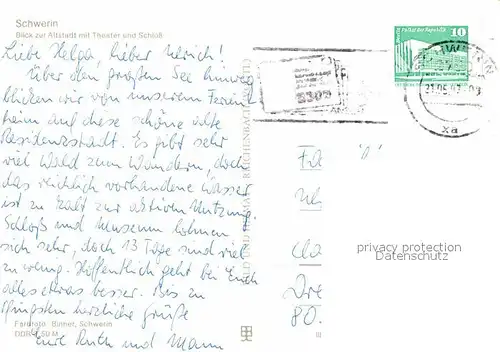 Schwerin
Blick zur Altstadt mit Theater und Schloß
Liebe Helga, lieber Ulrich!
Über den großen See hinweg
blicken wir von unserem Ferien
heim auf diese schöne alte
Residenzstadt. Es gibt sehr
viel Wald zum Wandern, doch
das reichlich vorhandene Wasser
ist zu kalt zur aktiven Nutzung.
Schloß und Museum lohnen
sich sehr, doch 13 Tage sind viel
zu wenig. Hoffentlich geht es bei Euch
alles etwas besser. Bis zu
Pfingsten herzliche Grüße
Eure Ruth und Mann
Farbfoto: Bitner, Schwerin
BILD UND HEIMAT REICHENBACH
10
Palast der Republik
Fa
Ul
Cla
Dre
80
privacy protection
Datenschutz